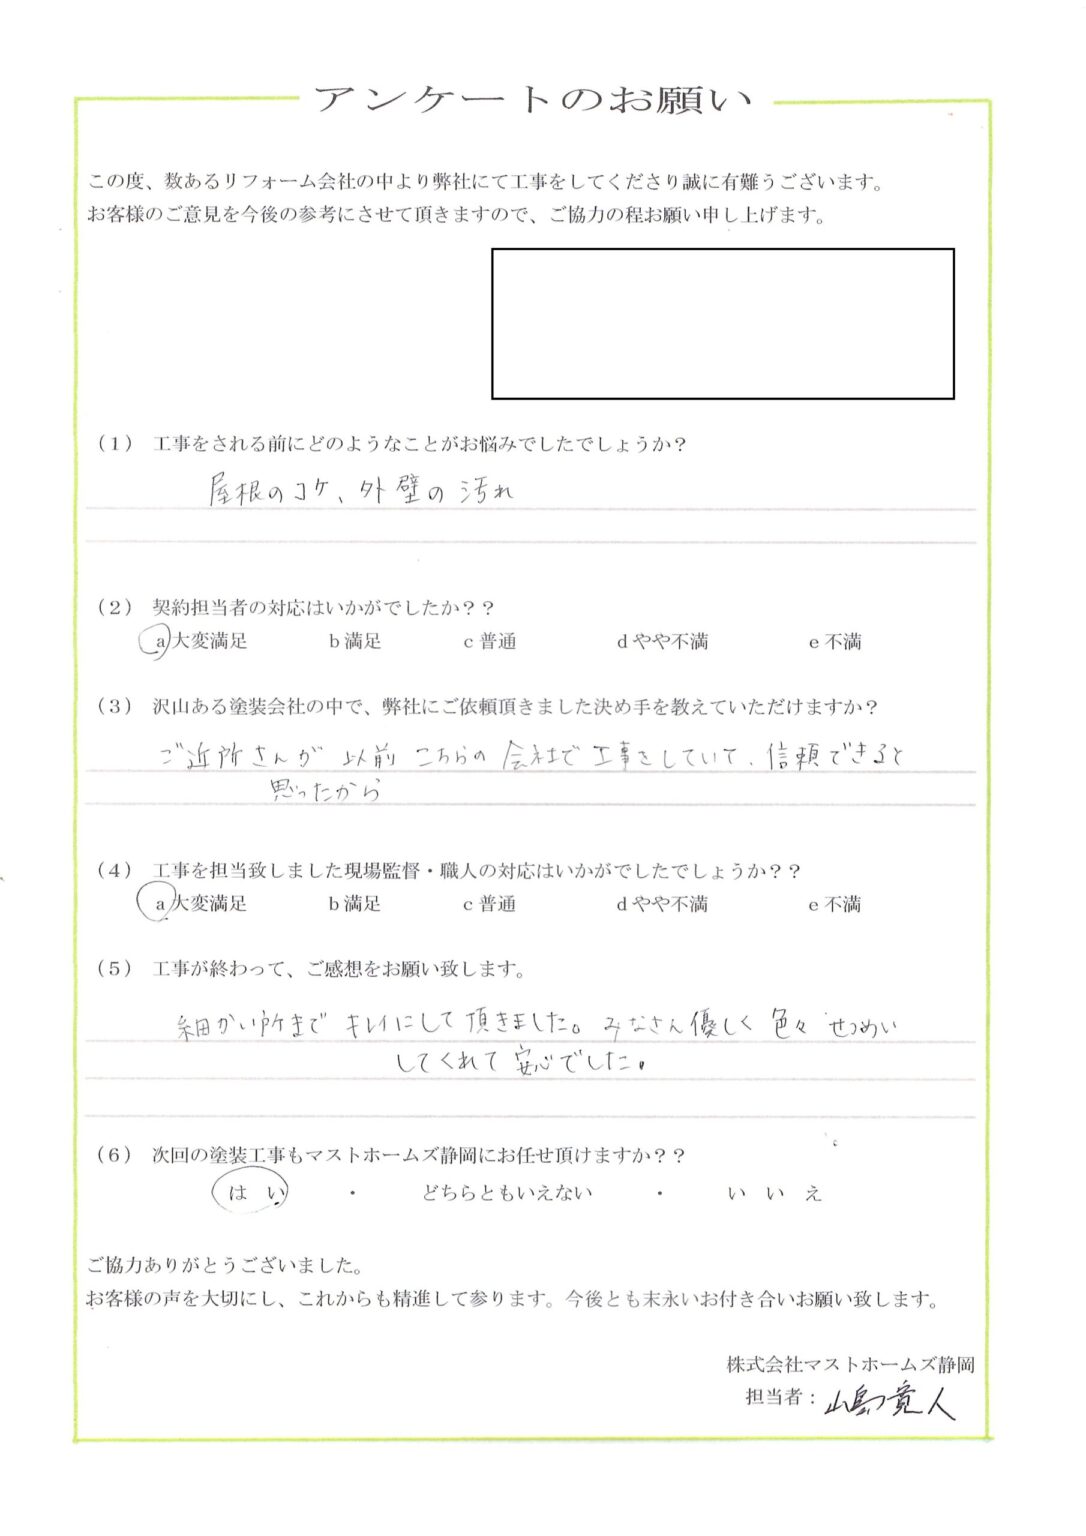 アンケートのお願い
この度、数あるリフォーム会社の中より弊社にて工事をしてくださり誠に有難うございます。
お客様のご意見を今後の参考にさせて頂きますので、ご協力の程お願い申し上げます。
（1） 工事をされる前にどのようなことがお悩みでしたでしょうか？
屋根のコケ、外壁の汚れ
（2） 契約担当者の対応はいかがでしたか？？
a 大変満足 b 満足 c 普通 d やや不満 e 不満
（3） 沢山ある塗装会社の中で、弊社にご依頼頂きました決め手を教えていただけますか？
ご近所さんが以前こちらの会社で工事をしていて、信頼できると
思ったから
（4） 工事を担当致しました現場監督・職人の対応はいかがでしたでしょうか？？
a 大変満足 b 満足 c 普通 d やや不満 e 不満
（5） 工事が終わって、ご感想をお願い致します。
細かい所までキレイにして頂きました。みなさん優しく色々せつめい
してくれて安心でした。
（6） 次回の塗装工事もマストホームズ静岡にお任せ頂けますか？？
はい ・ どちらともいえない ・ いいえ
ご協力ありがとうございました。
お客様の声を大切にし、これからも精進して参ります。今後とも末永いお付き合いお願い致します。
株式会社マストホームズ静岡
担当者：山島寛人